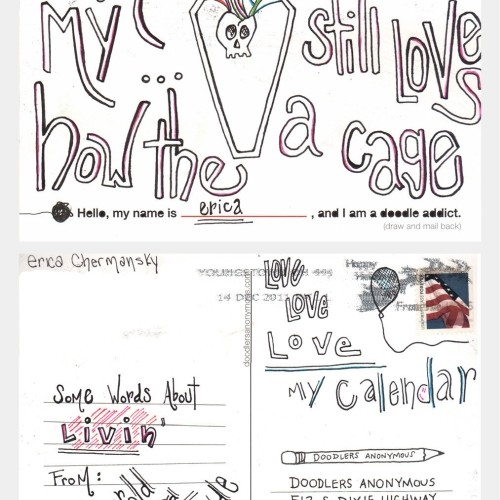 My
...
still Loves
how the
a cage
Hello, my name is erica, and I am a doodle addict.
(draw and mail back)
erica Chermansky
14 DEC 2011
doodlersanonymous.com
LOVE
LOVE
Love
My Calendar
Some Words About
Livin'
From:
DOODLERS ANONYMOUS
DOODLERS ANONYMOUS
512 S DIXIE HIGHWAY